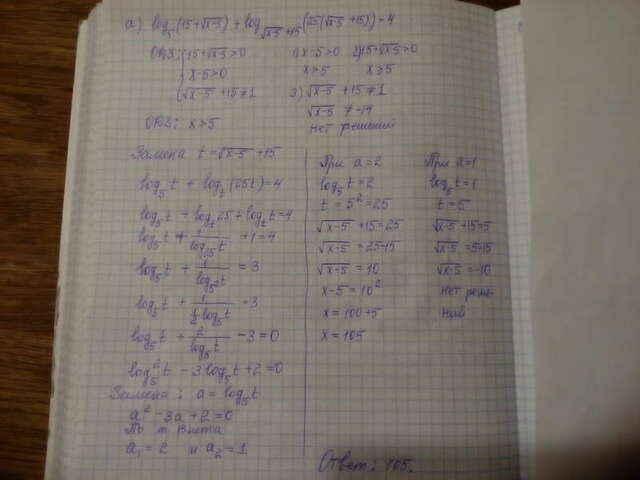 а) log₅(15+√x-5) + log_√x-5+15 (25(√x-5+15))=4
ОДЗ: {15+√x-5>0 1) x-5>0 2) 15+√x-5>0
x-5>0 x>5 x>5
√x-5+15≠1 3) √x-5+15≠1
√x-5≠-14
ОДЗ: x>5 нет решений
Замена t=√x-5+15
log₅t + logₜ(25t)=4
log₅t + logₜ25 + logₜt=4
log₅t + 1/log₂₅t +1=4
log₅t + 1/log₅²t = 3
log₅t + 1/(½log₅t) = 3
log₅t + 2/log₅t -3=0
log₅²t -3log₅t+2=0
Замена: a=log₅t
a²-3a+2=0
По т. Виета
a₁=2 и a₂=1
При a=2
log₅t=2
t=5²=25
√x-5+15=25
√x-5=25-15
√x-5=10
x-5=10²
x=100+5
x=105
При a=1
log₅t=1
t=5
√x-5+15=5
√x-5=5-15
√x-5=-10
нет реше-
ний
Ответ: 105.